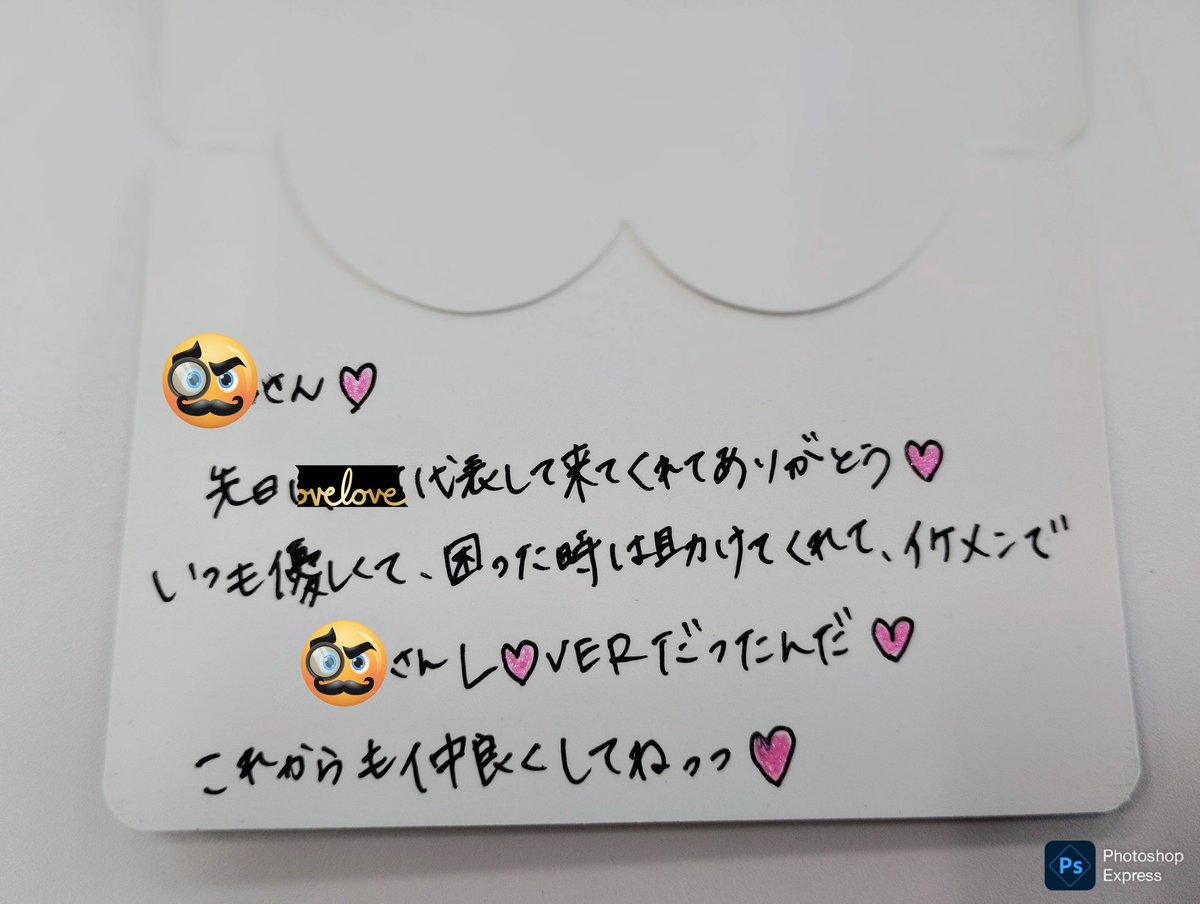 さん♡
先日 ovelove 代表して来てくれてありがとう♡
いつも優しくて、困った時は助けてくれて、イケメンで
さんL♡VERだったんだ♡
これからも仲良くしてねっっ♡
Ps Photoshop
Express